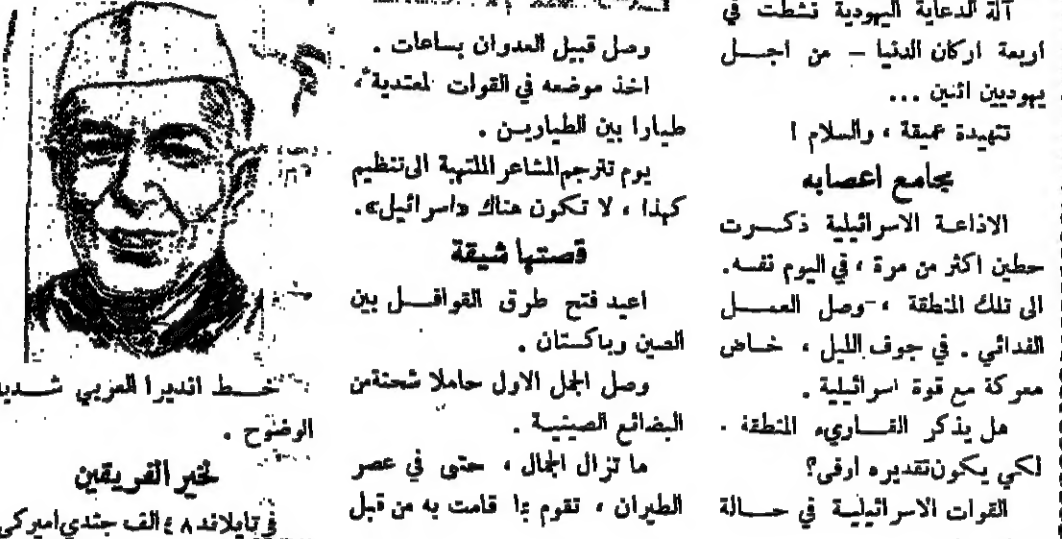 آلة الدعاية اليهودية نشطت في
اربعة اركان الدنيا — من اجـــل
يهوديين اثنين ...
تتهيدة عميقة ، والسلام !
بمجامع اعصابه
الاذاعـة الاسرائيلية ذكـــرت
حطين اكثر من مرة ، في اليوم نفسه.
الى تلك المنطقة ، وصل العمـــل
الفدائي . في جوف الليل ، خـــاض
معركة مع قوة اسرائيلية .
هل يذكر القـــاريء المنطقة .
لكي يكون تقديره اوفى؟
القوات الاسرائيليـة في حـــالة
وصل قبيل العدوان بساعات .
اخذ موضعه في القوات المعتدية ،
طيارا بين الطياريـن .
يوم تترجم المشاعر الملتهبة الى تنظيم
كهذا ، لا تكون هناك «اسرائيل».
قصتها شيقة
اعيد فتح طرق القوافـــل بين
الصين وباكستان .
وصل الجمل الاول حاملا شحنة من
البضائع الصينيـة .
ما تزال الجمال ، حتى في عصر
الطيران ، تقوم بما قامت به من قبل
خـــط انديرا العربي شـــديد
الوضوح .
لخير الفريقين
في تايلاند ٤٨ الف جندي اميركي